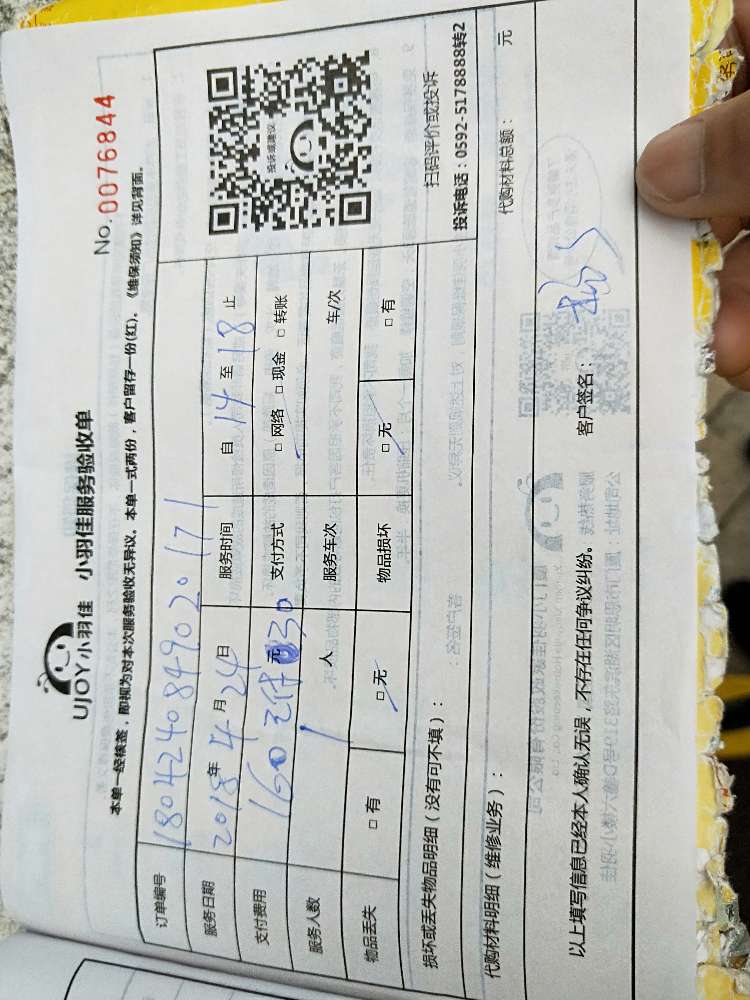 UJOY小羽佳 小羽佳服务验收单
No. 0076844
本单一经核签，即视为对本次服务验收无异议。本单一式两份，客户留存一份(红)。《维保须知》详见背面。
订单编号 180424084902017 1
服务日期 2018年 4 月 24 日 服务时间 自 14 至 18 止
支付费用 160 元 30 支付方式 □ 网络 □ 现金 □ 转账
服务人数 1 人 服务车次 车/次
物品丢失 □ 有 □ 无 物品损坏 □ 无 □ 有
投诉或建议
扫码评价或投诉
投诉电话：0592-5178888转2
损坏或丢失物品明细（没有可不填）：
代购材料明细（维修业务）： 代购材料总额： 元
以上填写信息已经本人确认无误，不存在任何争议纠纷。 客户签名：